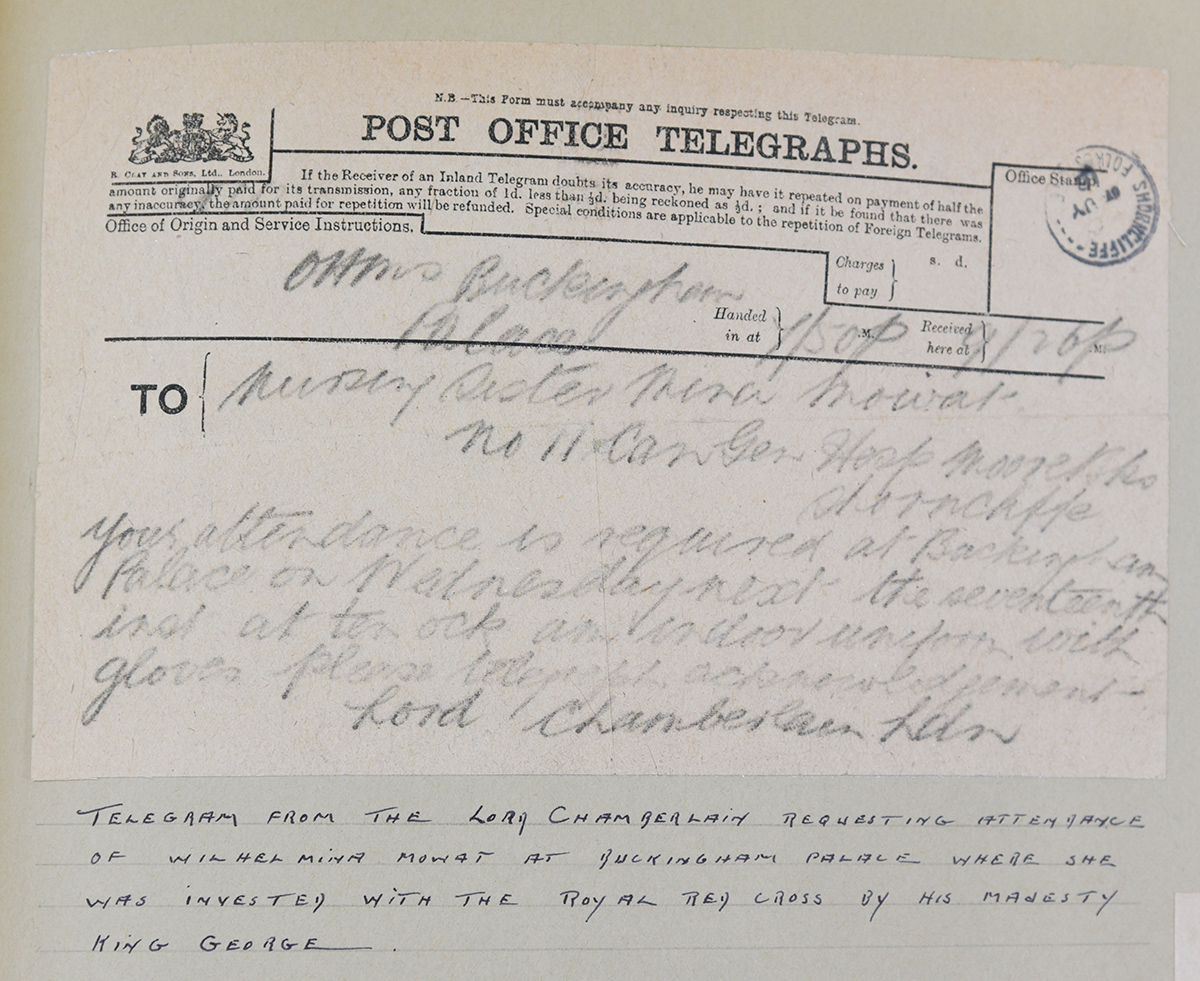 N.B.—This Form must accompany any inquiry respecting this Telegram.
POST OFFICE TELEGRAPHS.
R. CLAY AND SONS, Ltd., London.
If the Receiver of an Inland Telegram doubts its accuracy, he may have it repeated on payment of half the
amount originally paid for its transmission, any fraction of 1d. less than ½d. being reckoned as ½d.; and if it be found that there was
any inaccuracy, the amount paid for repetition will be refunded. Special conditions are applicable to the repetition of Foreign Telegrams.
Office Stamp.
SHORNCLIFFE
JY
Office of Origin and Service Instructions.
Charges to pay } s. d.
OHMS Buckingham
Palace
Handed in at } 1/50p M.
Received here at } /26p M.
TO { Nursing Sister Mina Mowat
No 11 Can Gen Hosp Moore Bks
Shorncliffe
Your attendance is required at Buckingham
Palace on Wednesday next the seventeenth
inst at ten ock am indoor uniform with
gloves please telegraph acknowledgement
Lord Chamberlain Ldn
TELEGRAM FROM THE LORD CHAMBERLAIN REQUESTING ATTENDANCE
OF WILHELMINA MOWAT AT BUCKINGHAM PALACE WHERE SHE
WAS INVESTED WITH THE ROYAL RED CROSS BY HIS MAJESTY
KING GEORGE.